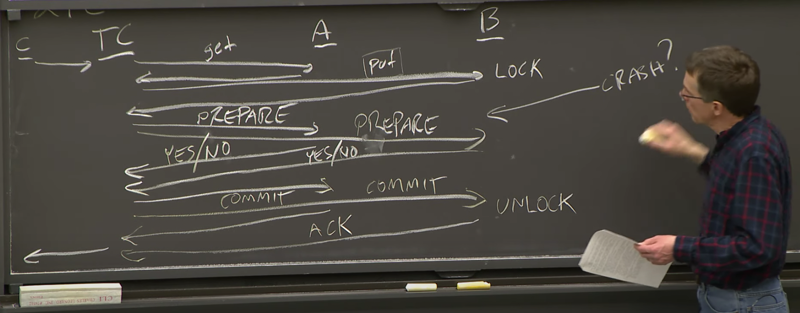 C TC A B
get
put
LOCK
CRASH?
PREPARE
PREPARE
YES/NO YES/NO
COMMIT COMMIT
UNLOCK
ACK